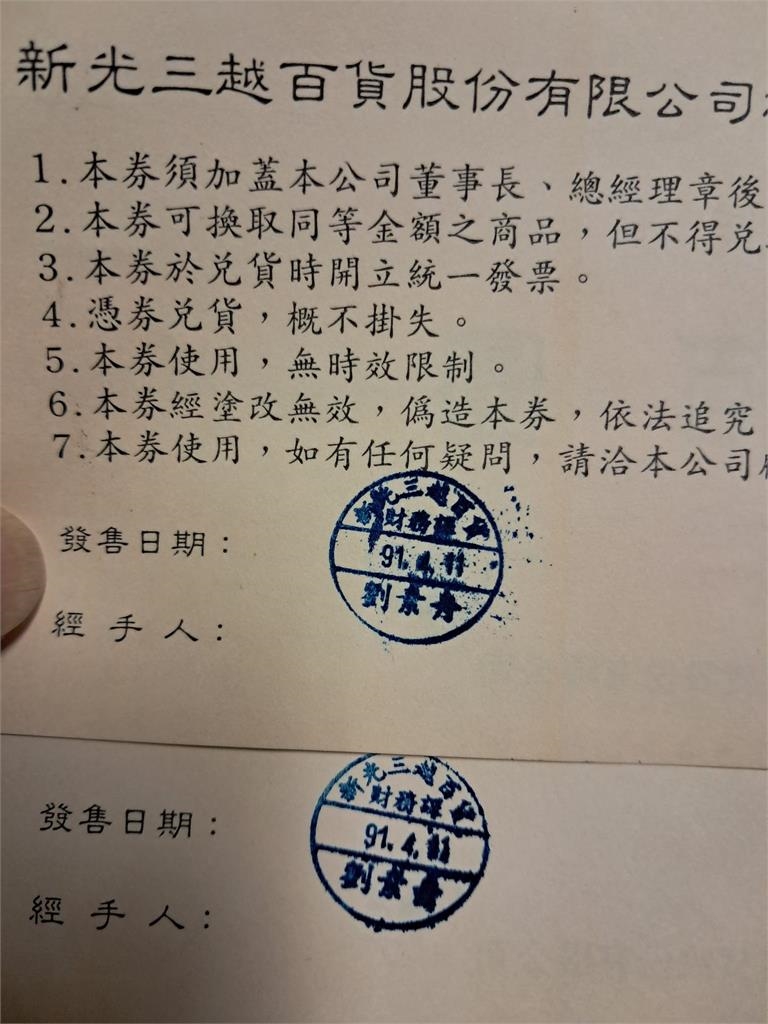 新光三越百貨股份有限公司
1.本券須加蓋本公司董事長、總經理章後
2.本券可換取同等金額之商品，但不得兌
3.本券於兌貨時開立統一發票。
4.憑券兌貨，概不掛失。
5.本券使用，無時效限制。
6.本券經塗改無效，偽造本券，依法追究
7.本券使用，如有任何疑問，請洽本公司
新光三越百貨
財務課
91.4.11
發售日期：
經手人：
新光三越百貨
財務課
91.4.11
發售日期：
經手人：